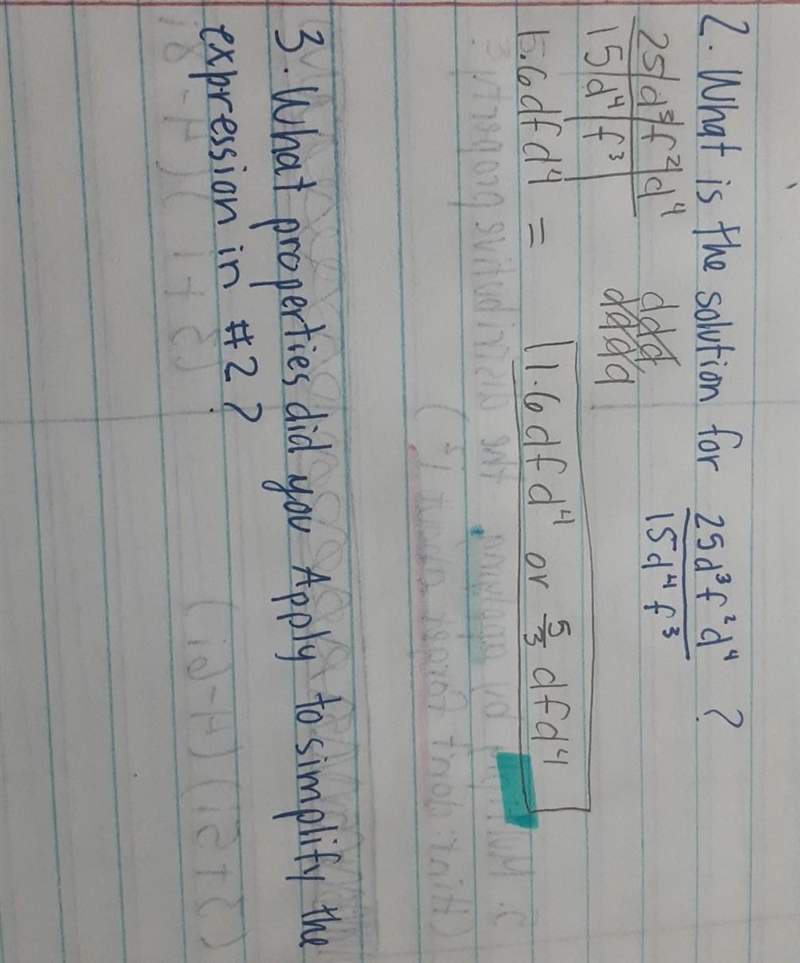 2. What is the solution for 25d³f²d⁴ / 15d⁴f³ ?
25d³f²d⁴ ddd
15d⁴f³ dddd
1.6dfd⁴ = 1.6dfd⁴ or 5/3 dfd⁴
3. What properties did you Apply to simplify the
expression in #2?